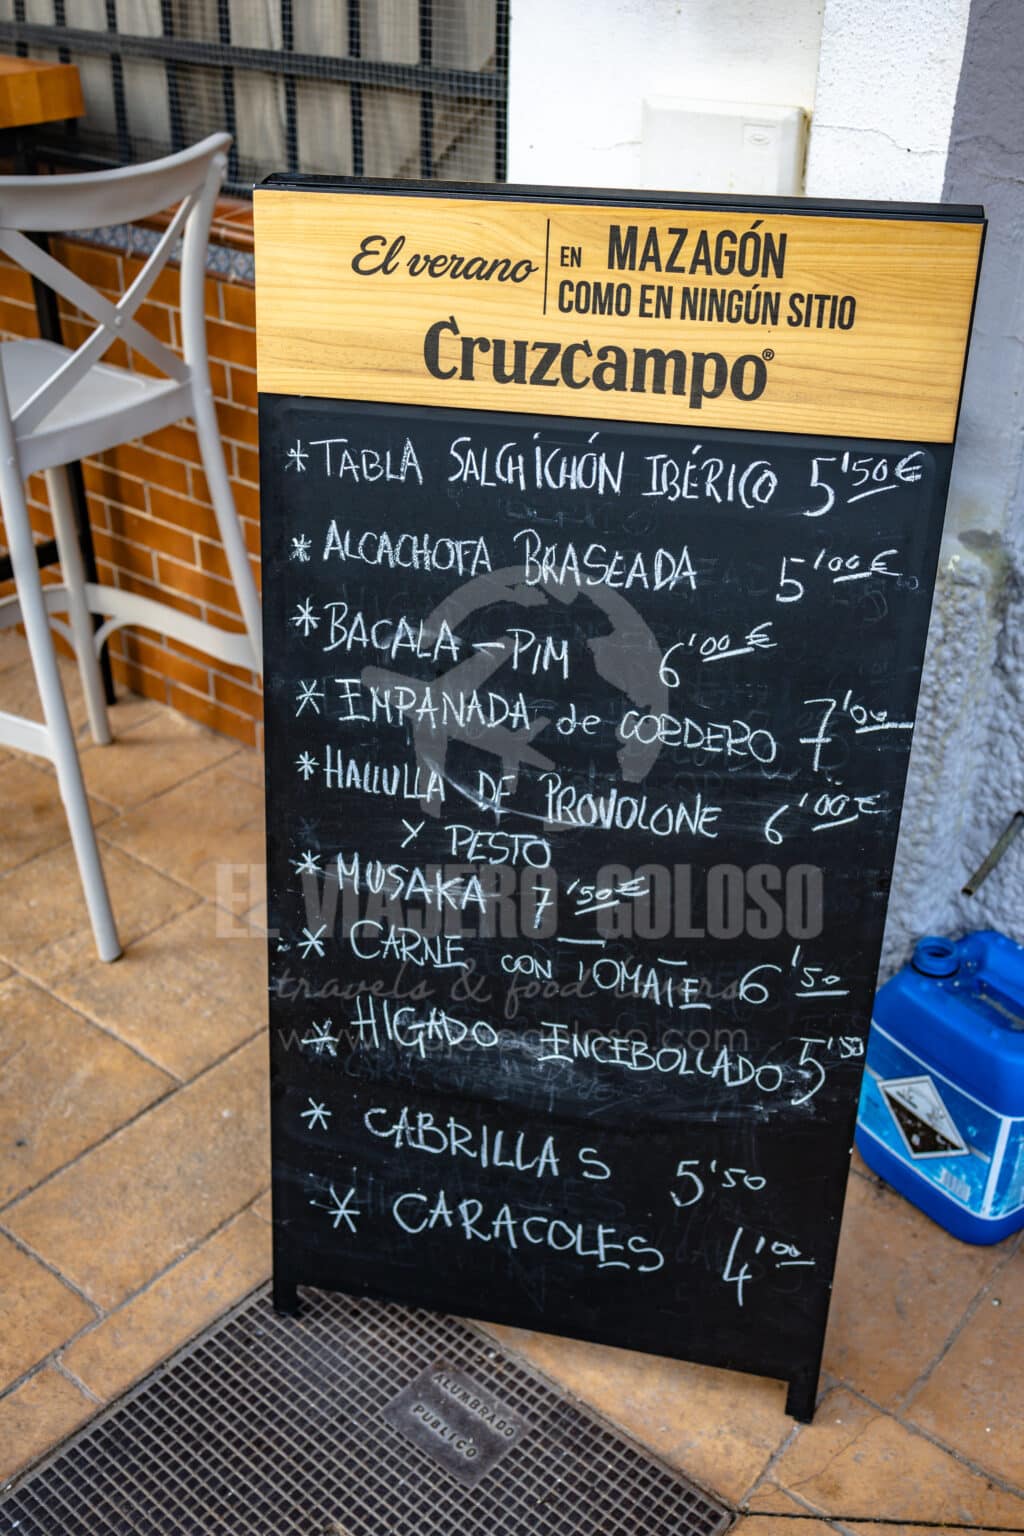 El verano
EN MAZAGÓN
COMO EN NINGÚN SITIO
Cruzcampo®
* TABLA SALCHICHÓN IBÉRICO 5'50€
* ALCACHOFA BRASEADA 5'00€
* BACALA-PIM 6'00€
* EMPANADA de CORDERO 7'00
* HALLULLA DE PROVOLONE 6'00€
Y PESTO
* MUSAKA 7'50€
* CARNE CON TOMATE 6'50
* HIGADO ENCEBOLLADO 5'50
* CABRILLAS 5'50
* CARACOLES 4'00
EL VIAJERO GOLOSO
travels & food lovers
www.viajerogoloso.com
ALUMBRADO
PUBLICO